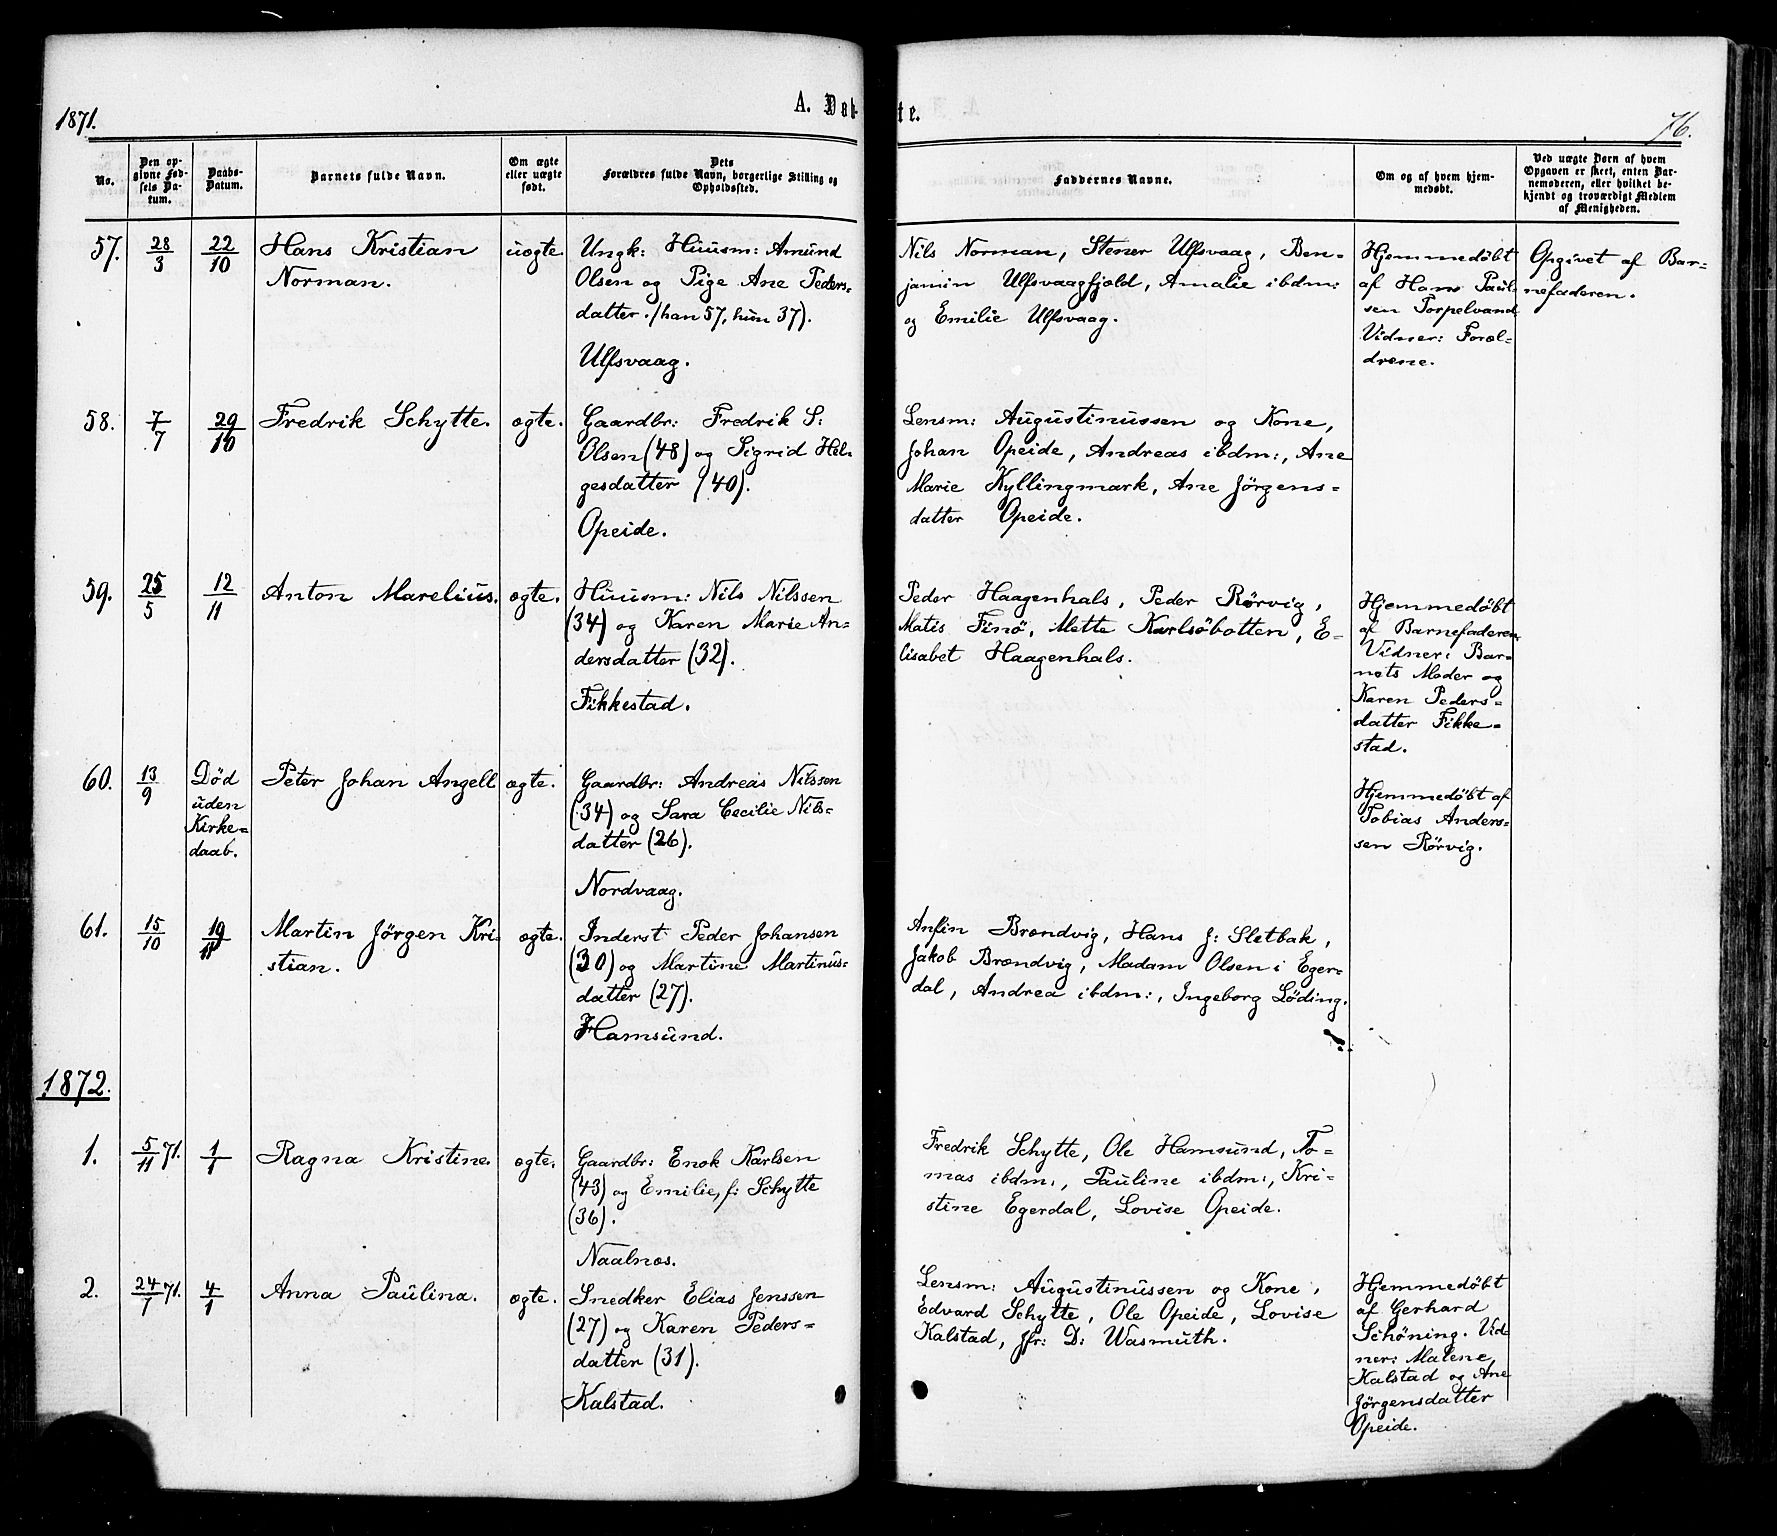 1871.
A. Døb-
te.
76.
No.
Den op-
givne Fød-
sels Da-
tum.
Daabs-
Datum.
Barnets fulde Navn.
Om ægte
eller uægte
født.
Dets
Forældres fulde Navn, borgerlige Stilling og
Opholdssted.
Faddernes Navne.
Om og af hvem hjem-
medøbt.
Ved uægte Børn af hvem
Opgaven er skeet, enten Bar-
nemoderen, eller hvilket be-
kjendt og troværdigt Medlem
af Menigheden.
57. 28/3 22/10 Hans Kristian
Norman.
uægte
Ungk: Huusm: Amund
Olsen og Pige Ane Peders-
datter. (han 57, hun 37).
Ulfsvaag.
Nils Norman, Stener Ulfsvaag, Ben-
jamin Ulfsvaagfjeld, Amalie ibdm:
og Emilie Ulfsvaag.
Hjemmedøbt
af Hans Paul-
sen Torpelvand
Vidner: Foræl-
drene.
Opgivet af Bar-
nefaderen.
58. 7/7 29/10 Fredrik Schytte. ægte.
Gaardbr: Fredrik S:
Olsen (48) og Sigrid Hel-
gesdatter (40).
Opeide.
Lensm: Augustinussen og Kone,
Johan Opeide, Andreas ibdm:, Ane
Marie Kyllingmark, Ane Jörgens-
datter Opeide.
59. 25/5 12/11 Anton Marelius. ægte.
Huusm: Nils Nilssen
(34) og Karen Marie An-
dersdatter (32).
Fikkestad.
Peder Haagenhals, Peder Rørvig,
Matis Finö, Mette Karlsöbotten, E-
lisabet Haagenhals.
Hjemmedøbt
af Barnefaderen
Vidner: Bar-
nets Moder og
Karen Peders-
datter Fikke-
stad.
60. 13/9 Død
uden
Kirke-
daab.
Peter Johan Angell ægte.
Gaardbr: Andreas Nilssen
(34) og Sara Cecilie Nils-
datter (26).
Nordvaag.
Hjemmedøbt af
Tobias Anders-
sen Rørvig.
61. 15/10 19/11 Martin Jörgen Kri-
stian.
ægte.
Inderst Peder Johansen
(30) og Martine Martinus-
datter (27).
Hamsund.
Anfin Brændvig, Hans J: Sletbak,
Jakob Brændvig, Madam Olsen i Eger-
dal, Andrea ibdm:, Ingeborg Löding.
1872.
1. 5/11 71. 1/1 Ragna Kristine. ægte.
Gaardbr: Enok Karlsen
(43) og Emilie, f: Schytte
(36).
Naalnæs.
Fredrik Schytte, Ole Hamsund, To-
mas ibdm:, Pauline ibdm:, Kri-
stine Egerdal, Lovise Opeide.
2. 24/7 71. 4/1 Anna Paulina. ægte.
Snedker Elias Jenssen
(27) og Karen Peders-
datter (31).
Kalstad.
Lensm: Augustinussen og Kone,
Edvard Schytte, Ole Opeide, Lovise
Kalstad, Jfr: D: Wasmuth.
Hjemmedøbt
af Gerhard
Schöning. Vid-
ner: Malene
Kalstad og Ane
Jörgensdatter
Opeide.